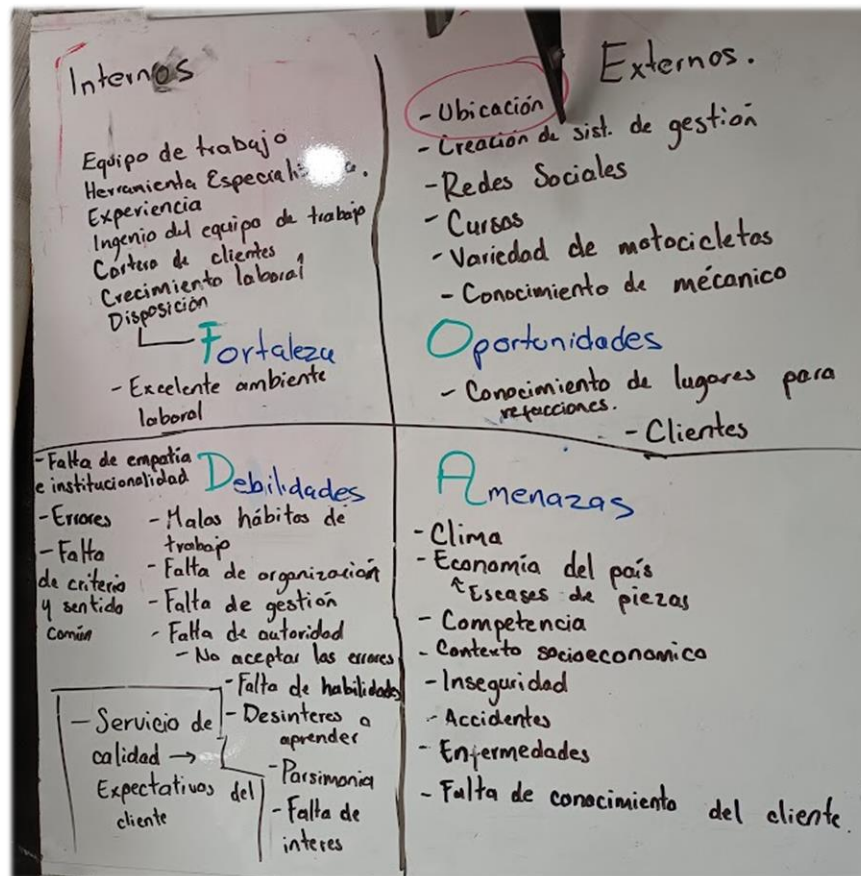 Internos
Equipo de trabajo
Herramienta
Experiencia
Ingenio del equipo de trabajo
Cartera de clientes
Crecimiento laboral
Disposición
Fortaleza
- Excelente ambiente
laboral
Externos.
- Ubicación
- Creación de sist. de gestión
- Redes Sociales
- Cursos
- Variedad de motocicletas
- Conocimiento de mécanico
Oportunidades
- Conocimiento de lugares para
refacciones.
- Clientes
- Falta de empatía
e institucionalidad
- Errores
- Falta
de criterio
y sentido
común
Debilidades
- Malos hábitos de
trabajo
- Falta de organización
- Falta de gestión
- Falta de autoridad
- No aceptar los errores
- Falta de habilidades
- Desinteres a
aprender
- Parsimonia
- Falta de
interes
- Servicio de
calidad →
Expectativas del
cliente
Amenazas
- Clima
- Economía del país
↑ Escases de piezas
- Competencia
- Contexto socioeconomico
- Inseguridad
- Accidentes
- Enfermedades
- Falta de conocimiento del cliente.